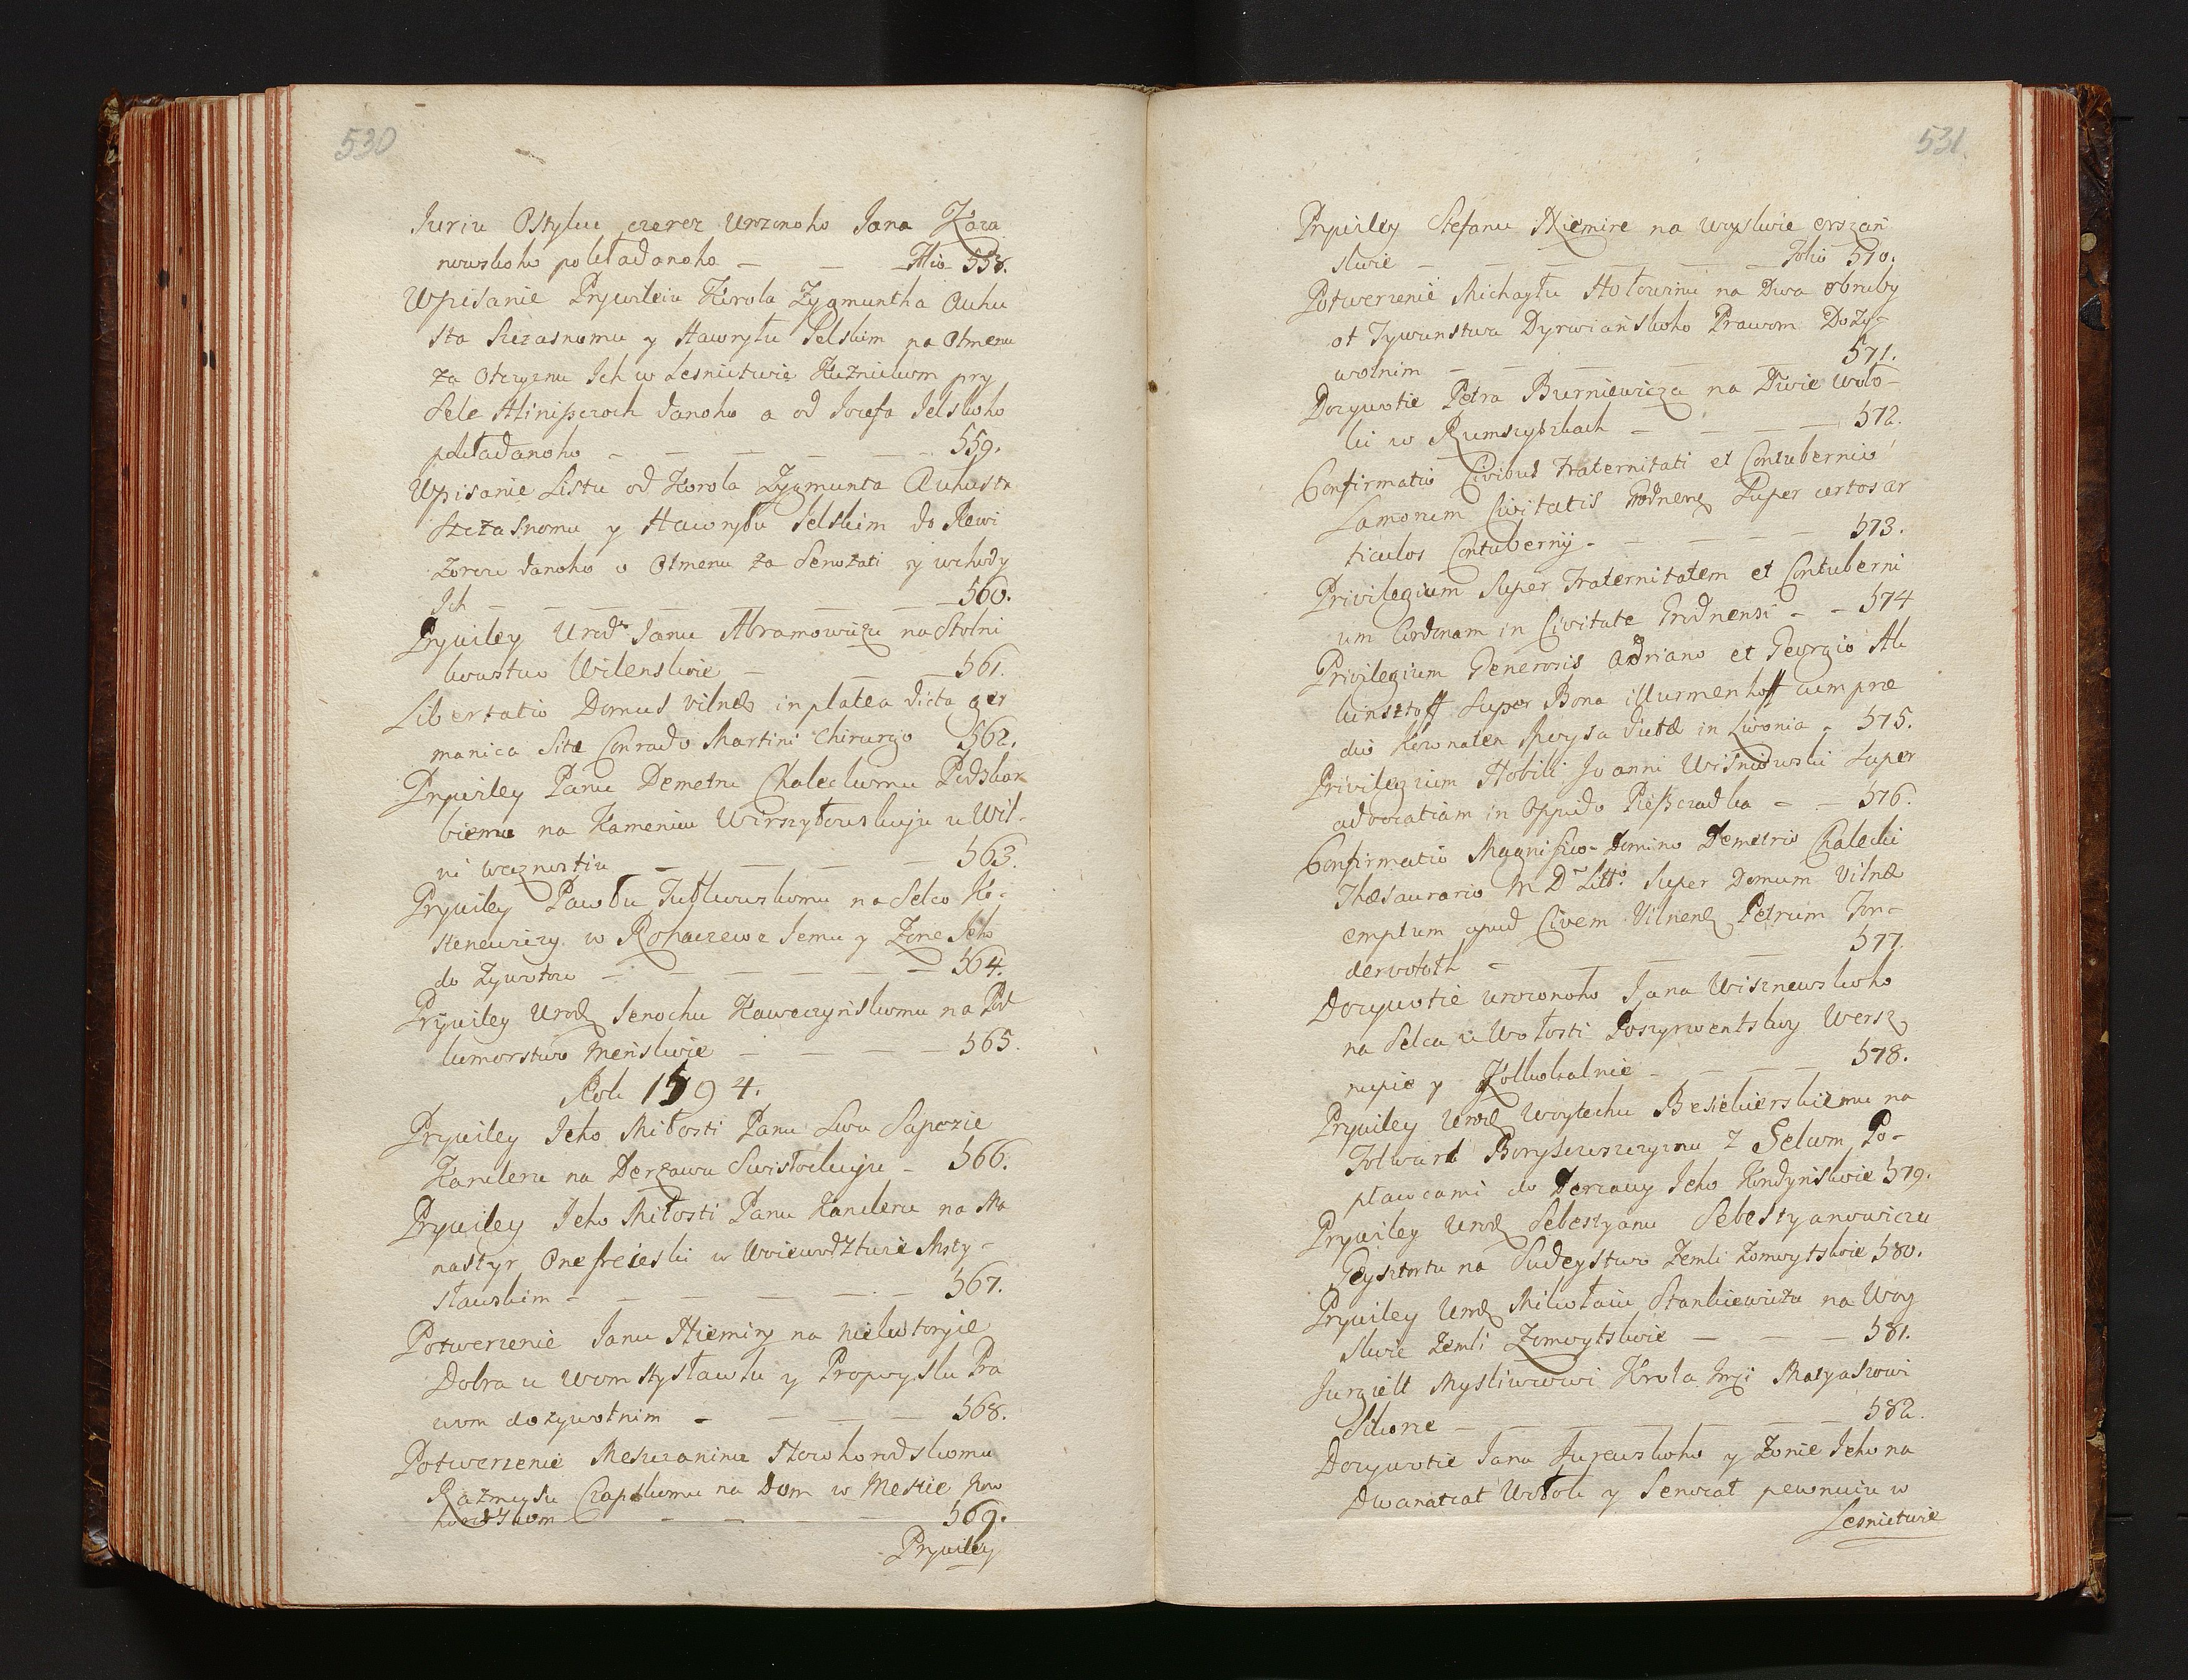 530
Juriu Ostyku czerez Urzonoho Jana Koza
nowskoho pokładanoho — — Folio 558.
Wpisanie Prywileiu Korola Zygmuntha Auhu
sta Szczasnomu y Hawryłu Jelskim na Otmenu
za Otczyznu Ich w Lesnictwie Kuźnickom pry
Sele Hliniszczoch danoho a od Jozefa Jelskoho
pokładanoho — — — — — 559.
Wpisanie Listu od Korola Zygmunta Auhusta
Szczasnomu y Hawryłu Jelskim do Rewi
zorow danoho o Otmenu za Senożati y wchody
Ich — — — — — — 560.
Prywiley Urodz Janu Abramowiczu na Stolni
kowstwo Wilenskoie — — — 561.
Libertatio Domus Vilnæ in platea dicta ger
manica Sitæ Conrado Martini Chirurgo 562.
Prywiley Panu Demetru Chaleckomu Podskar
biemu na Kamenicu Wirszyłowskuju u Wil-
ni wecznostiu — — — 563.
Prywiley Pawłu Tutkowskomu na Selco Ko-
stenewiczy w Rohaczewe Jemu y Żone Jeho
do Żywotow — — — — — 564.
Prywiley Urodz Jenochu Kaweczynskomu na Pod
komorstwo Menskoie — — — — 565.
Rok 1594.
Prywiley Jeho Miłosti Panu Lwu Sapezie
Kancleru na Derżawu Swisłockuju — 566.
Prywiley Jeho Miłosti Panu Kancleru na Ma
nastyr Onefreieski w Woiewodztwie Msty-
sławskim — — — — — 567.
Potwerzenie Janu Niemiry na niekotoryie
Dobra u Womstysławlu y Propoysku Pra
wom dożywotnim — — — — 568.
Potwerzenie Meszczaninu Nowhorodskomu
Kazmeru Czapskomu na Dom w Mestie Now
horodskom — — — — 569.
Prywiley
531
Prywiley Stefanu Niemire na woyskoie orszan
skoie — — — — Folio 570.
Potwerzenie Michayłu Hołowni na Dwa obruby
ot Tywunstwa Dyrwiańskoho Prawom Doży-
wotnim — — — — 571.
Dozywotie Petra Burniewicza na Dwie Woło-
ki w Rumszyszkach — — — — 572.
Confirmatio Civibus Fraternitati et Contubernio
Lanionum Civitatis Grodnensz Super certos ar
ticulos Contubernij — — — — 573.
Privilegium Super Fraternitatem et Contuberni
um Cerdonam in Civitate Grodnensi — — 574
Privilegium Generosis Adriano et Georgio Al
kinsztoff Super Bona illurmenhoff cum præ
dio Kewnalen Moysa dictæ in Livonia — 575.
Privilegium Nobili Joanni Wisniowski Super
advocatiam in Oppido Pieszczadka — — 576.
Confirmatio Magnifico Domino Demetrio Chalecki
Thesaurario M D Litto Super Domum Vilnæ
emptum apud Civem Vilnensz Petrum Fon-
derwototh — — — — 577.
Dozywotie urozonoho Jana Wisznewskoho
na Selca u Wołosti Poszyrwentskoy Wersz
nupie y Kołkokalnie — — — — 578.
Prywiley Urodz Woytechu Besiekierskiemu na
Folwark Boryszewszczyznu z Selcom Po-
pławcami do Derżawy Jeho Kondyńskoie 579.
Prywiley Urodz Sebestyanu Sebestyanowiczu
Geysztortu na Sudeystwo Zemli Żomoytskoie 580.
Prywiley Urodz Mikołaiu Stankiewiczu na Woy
skoie Zemli Żomoytskoie — — — 581.
Jurgielt Mysliwcowi Krola Jmći Matyaszowi
Sikorze — — — — — 582.
Dozywotie Jana Jurewskoho y Żonie Jeho na
Dwanatcat Wołok y Senożat pewnuiu w
Lesnictwie